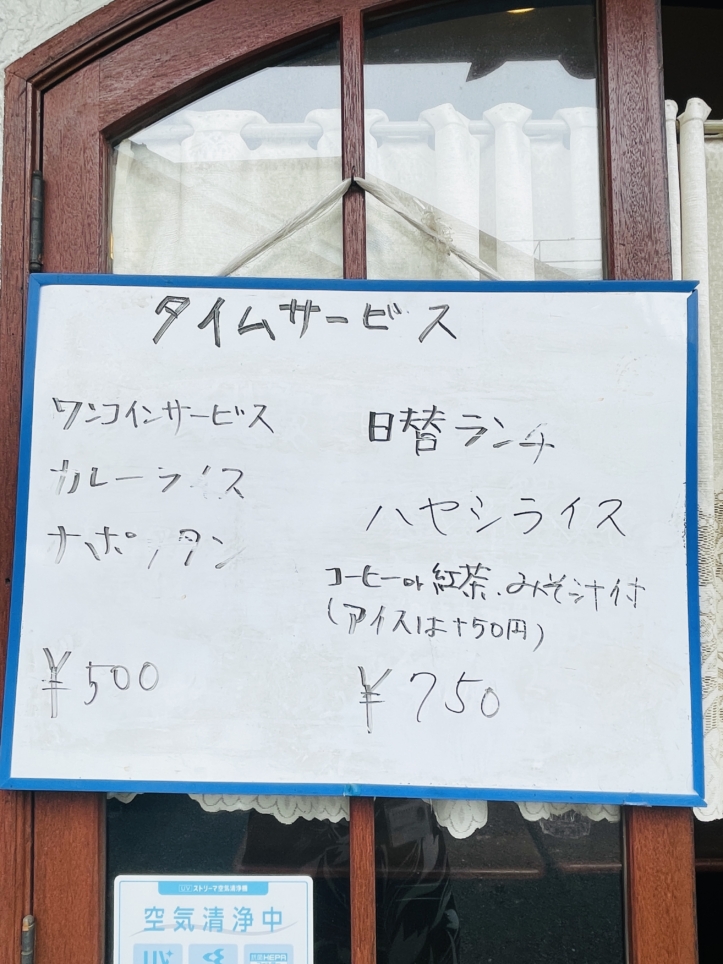 タイムサービス
ワンコインサービス
カレーライス
ナポリタン
¥500
日替ランチ
ハヤシライス
コーヒーor紅茶.みそ汁付
(アイスは+50円)
¥750
UVストリーマ空気清浄機
空気清浄中
UV+
HEPA